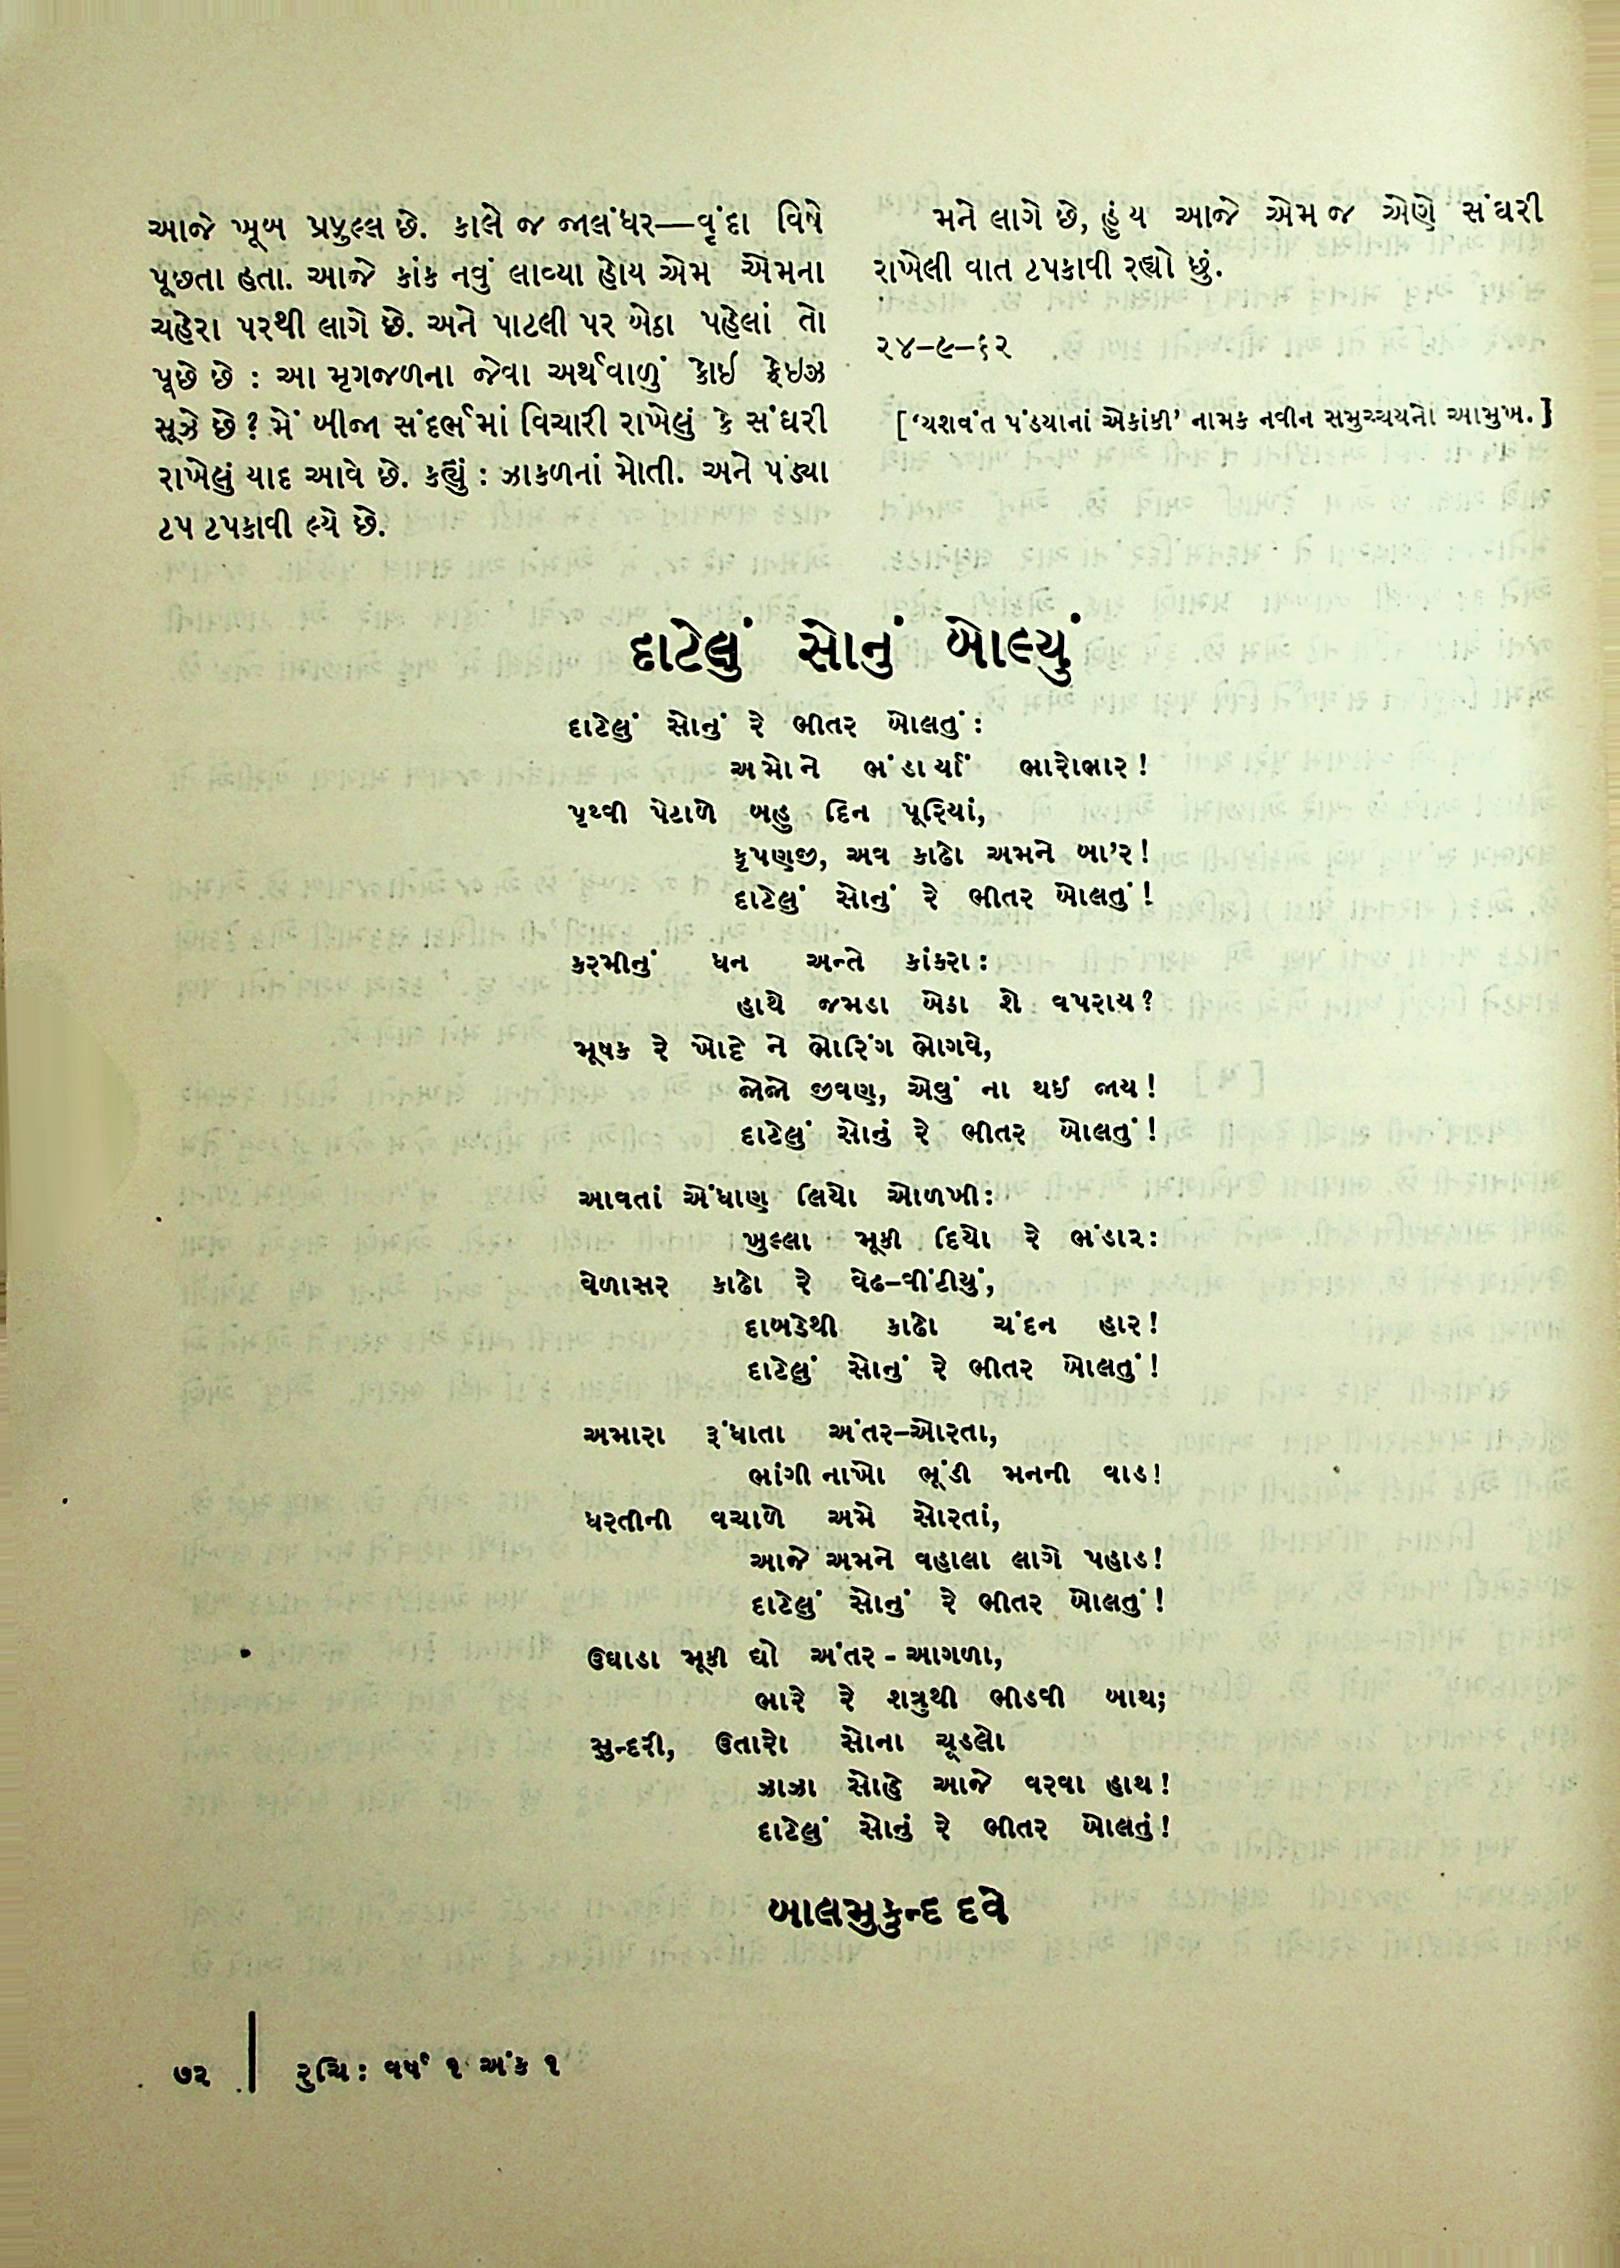 આજે ખૂબ પ્રફુલ્લ છે. કાલે જ જાલંધર—વૃંદા વિષે
પૂછતા હતા. આજે કાંક નવું લાવ્યા હોય એમ એમના
ચહેરા પરથી લાગે છે. અને પાટલી પર બેઠા પહેલાં તો
પૂછે છે : આ મૃગજળના જેવા અર્થવાળું કોઈ ફ્રેઇઝ
સૂઝે છે? મેં બીજા સંદર્ભમાં વિચારી રાખેલું કે સંઘરી
રાખેલું યાદ આવે છે. કહ્યું : ઝાકળનાં મોતી. અને પંડ્યા
ટપ ટપકાવી લ્યે છે.
મને લાગે છે, હુંય આજે એમ જ એણે સંઘરી
રાખેલી વાત ટપકાવી રહ્યો છું.
૨૪–૯–૬૨
[‘યશવંત પંડયાનાં એકાંકી’ નામક નવીન સમુચ્ચયનો આમુખ.]
દાટેલું સોનું બોલ્યું
દાટેલું સોનું રે ભીતર બોલતું :
અમોને ભંડાર્યાં ભારોભાર !
પૃથ્વી પેટાળે બહુ દિન પૂરિયાં,
કૃપણજી, અવ કાઢો અમને બા’ર !
દાટેલું સોનું રે ભીતર બોલતું !
કરમીનું ધન અન્તે કાંકરા :
હાથે જમડા બેઠા શે વપરાય ?
મૂષક રે ખોદે ને ભોરિંગ ભોગવે,
જોજો જીવણ, એવું ના થઈ જાય !
દાટેલું સોનું રે ભીતર બોલતું !
આવતાં એંધાણ લિયો ઓળખી :
ખુલ્લા મૂકી દિયો રે ભંડાર :
વેળાસર કાઢો રે વેઢ–વીંટીયું,
દાબડેથી કાઢો ચંદન હાર !
દાટેલું સોનું રે ભીતર બોલતું !
અમારા રૂંધાતા અંતર–ઓરતા,
ભાંગી નાખો ભૂંડી મનની વાડ !
ધરતીની વચાળે અમે સોરતાં,
આજે અમને વહાલા લાગે પહાડ !
દાટેલું સોનું રે ભીતર બોલતું !
ઉઘાડા મૂકી દ્યો અંતર - આગળા,
ભારે રે શત્રુથી ભીડવી બાથ;
સુન્દરી, ઉતારો સોના ચૂડલો
ઝાઝા સોહે આજે વરવા હાથ !
દાટેલું સોનું રે ભીતર બોલતું !
બાલમુકુન્દ દવે
૭૨ | રુચિ : વર્ષ ૧ અંક ૧